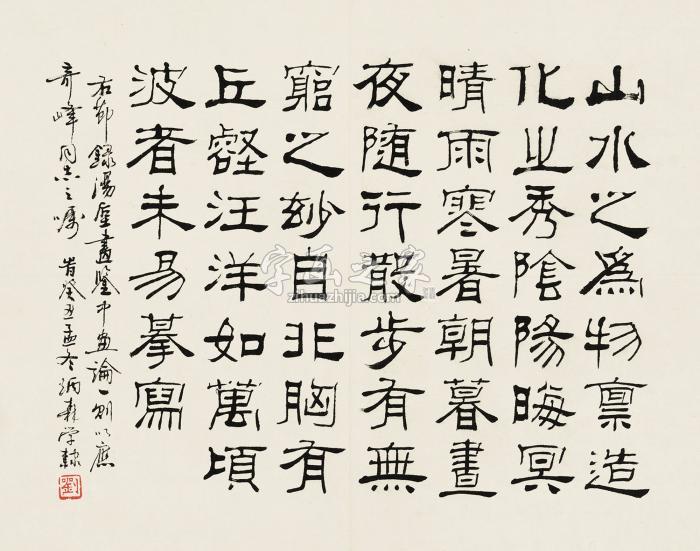 山水之為物禀造
化之秀陰陽晦冥
晴雨寒暑朝暮晝
夜随行散步有無
窮之妙自非胸有
丘壑汪洋如萬頃
波者未易摹寫
右節錄湯垕畫鑒中畫論一則以應
奇峰同志之嘱 旹癸丑孟冬炳森学隸
劉
zihuazhijia.com